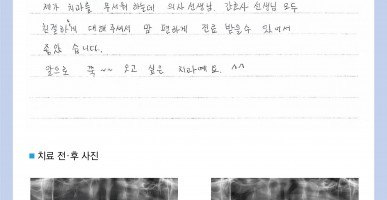 제가 치과를 무서워 하는데 의사선생님, 간호사 선생님 모두
친절하게 대해주셔서 맘 편하게 진료 받을수 있어서
좋았 습니다.
앞으로 쭉~~ 오고 싶은 치과예요. ^^
■ 치료 전·후 사진